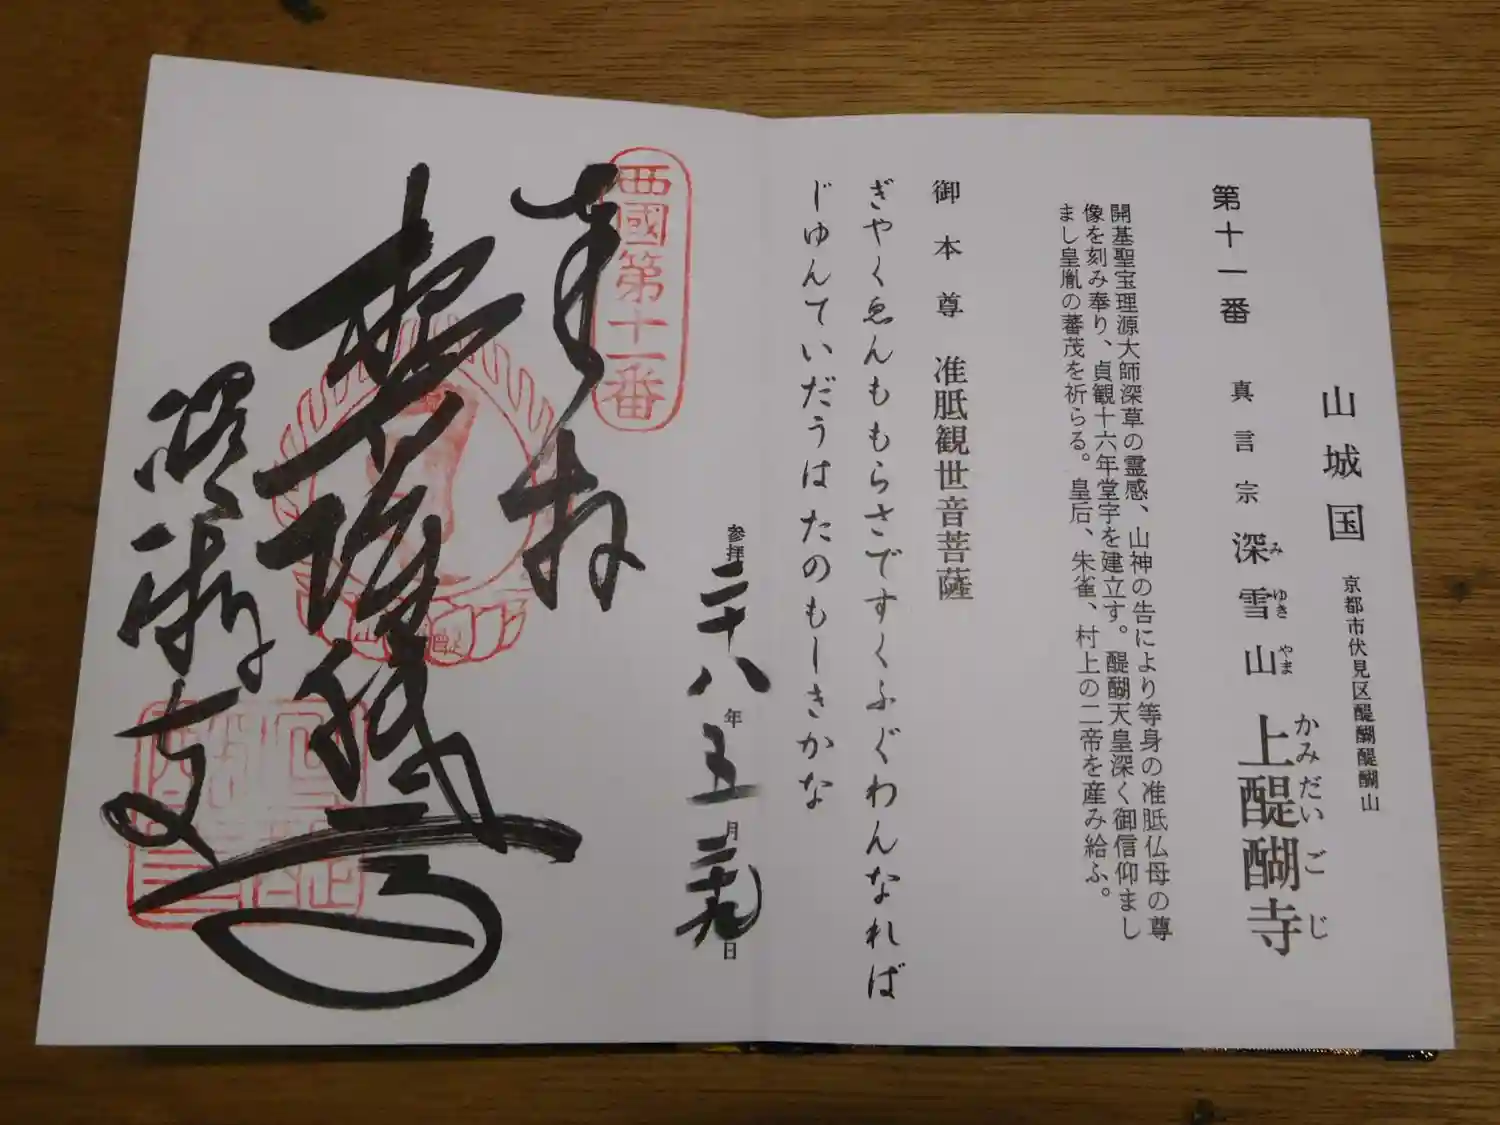 山城国 京都市伏見区醍醐醍醐山
第十一番 真言宗 深雪山 上醍醐寺
みゆきやま かみだいごじ
開基聖宝理源大師深草の霊感、山神の告により等身の准胝仏母の尊
像を刻み奉り、貞観十六年堂宇を建立す。醍醐天皇深く御信仰まし
まし皇胤の蕃茂を祈らる。皇后、朱雀、村上の二帝を産み給ふ。
御本尊 准胝観世音菩薩
ぎやくゑんももらさですくふぐわんなれば
じゆんていだうはたのもーしきかな
参拝二十八年五月二十九日
西國第十一番
奉拝
醍醐寺